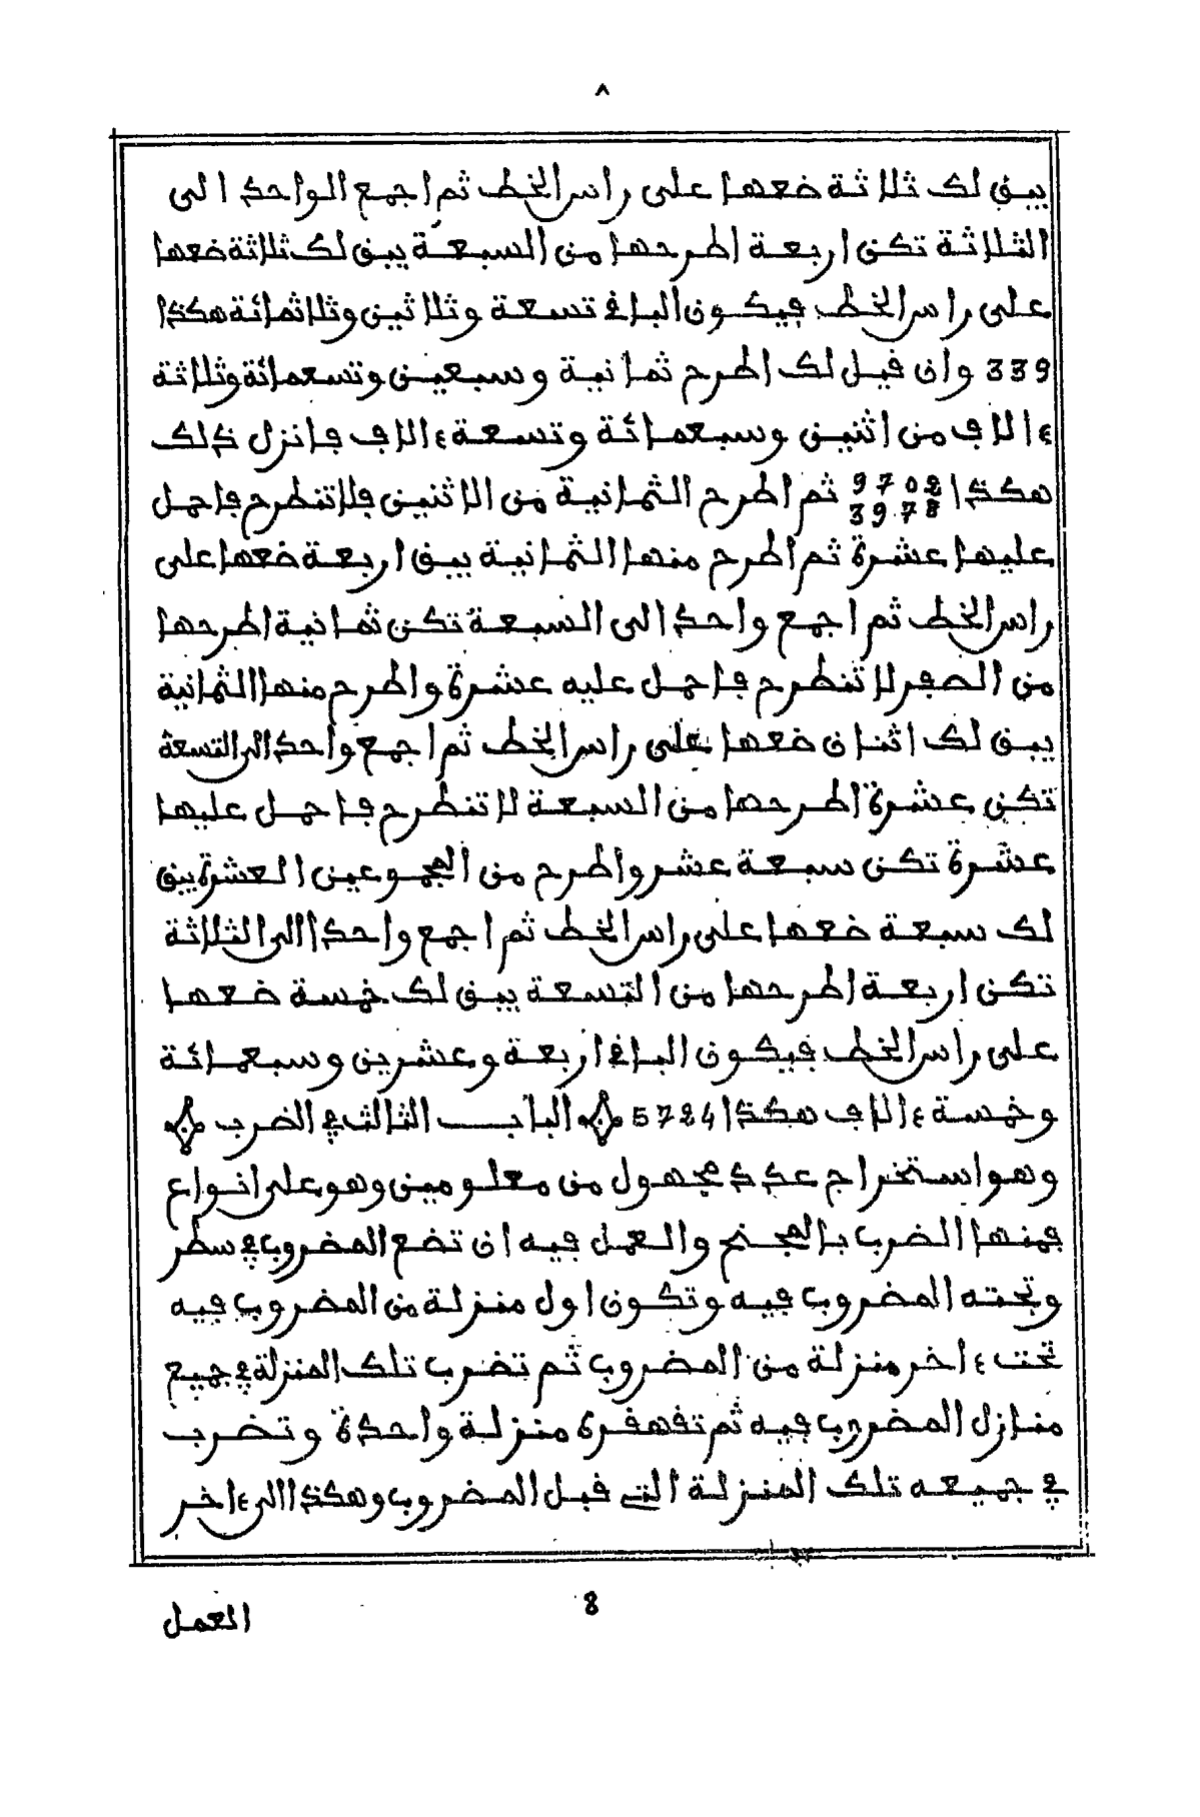 ٨
يبق لك ثلاثة ضعها على راس الخط ثم اجمع الواحد الى
الثلاثة تكن اربعة اطرحها من السبعة يبق لك ثلاثة ضعها
على راس الخط فيكون الباقي تسعة وثلاثين وثلاثمائة هكذا
339 وان قيل لك اطرح ثمانية وسبعين وتسعمائة وثلاثة
ءالاف من اثنين وسبعمائة وتسعة ءالاف فانزل ذلك
هكذا 9702 3978 ثم اطرح الثمانية من الاثنين فلا تنطرح فاحمل
عليها عشرة ثم اطرح منها الثمانية يبق اربعة ضعها على
راس الخط ثم اجمع واحدا الى السبعة تكن ثمانية اطرحها
من الصفر لا تنطرح فاحمل عليه عشرة واطرح منها الثمانية
يبق لك اثنان ضعها على راس الخط ثم اجمع واحدا الى التسعة
تكن عشرة اطرحها من السبعة لا تنطرح فاحمل عليها
عشرة تكن سبعة عشر واطرح من المجموعين العشرة يبق
لك سبعة ضعها على راس الخط ثم اجمع واحدا الى الثلاثة
تكن اربعة اطرحها من التسعة يبق لك خمسة ضعها
على راس الخط فيكون الباقي اربعة وعشرين وسبعمائة
وخمسة ءالاف هكذا 5724 الباب الثالث في الضرب
وهو استخراج عدد مجهول من معلومين وهو على انواع
فمنها الضرب بالمجنح والعمل فيه ان تضع المضروب في سطر
وتحته المضروب فيه وتكون اول منزلة من المضروب فيه
تحت ءاخر منزلة من المضروب ثم تضرب تلك المنزلة في جميع
منازل المضروب فيه ثم تقهقره منزلة واحدة وتضرب
في جميعه تلك المنزلة التي قبل المضروب وهكذا الى ءاخر
العمل
8